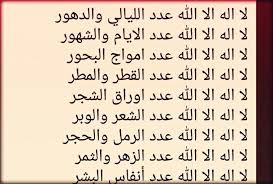 لا اله الا الله عدد الليالي والدهور
لا اله الا الله عدد الايام والشهور
لا اله الا الله عدد امواج البحور
لا اله الا الله عدد القطر والمطر
لا اله الا الله عدد اوراق الشجر
لا اله الا الله عدد الشعر والوبر
لا اله الا الله عدد الرمل والحجر
لا اله الا الله عدد الزهر والثمر
لا اله الا الله عدد أنفاس البشر